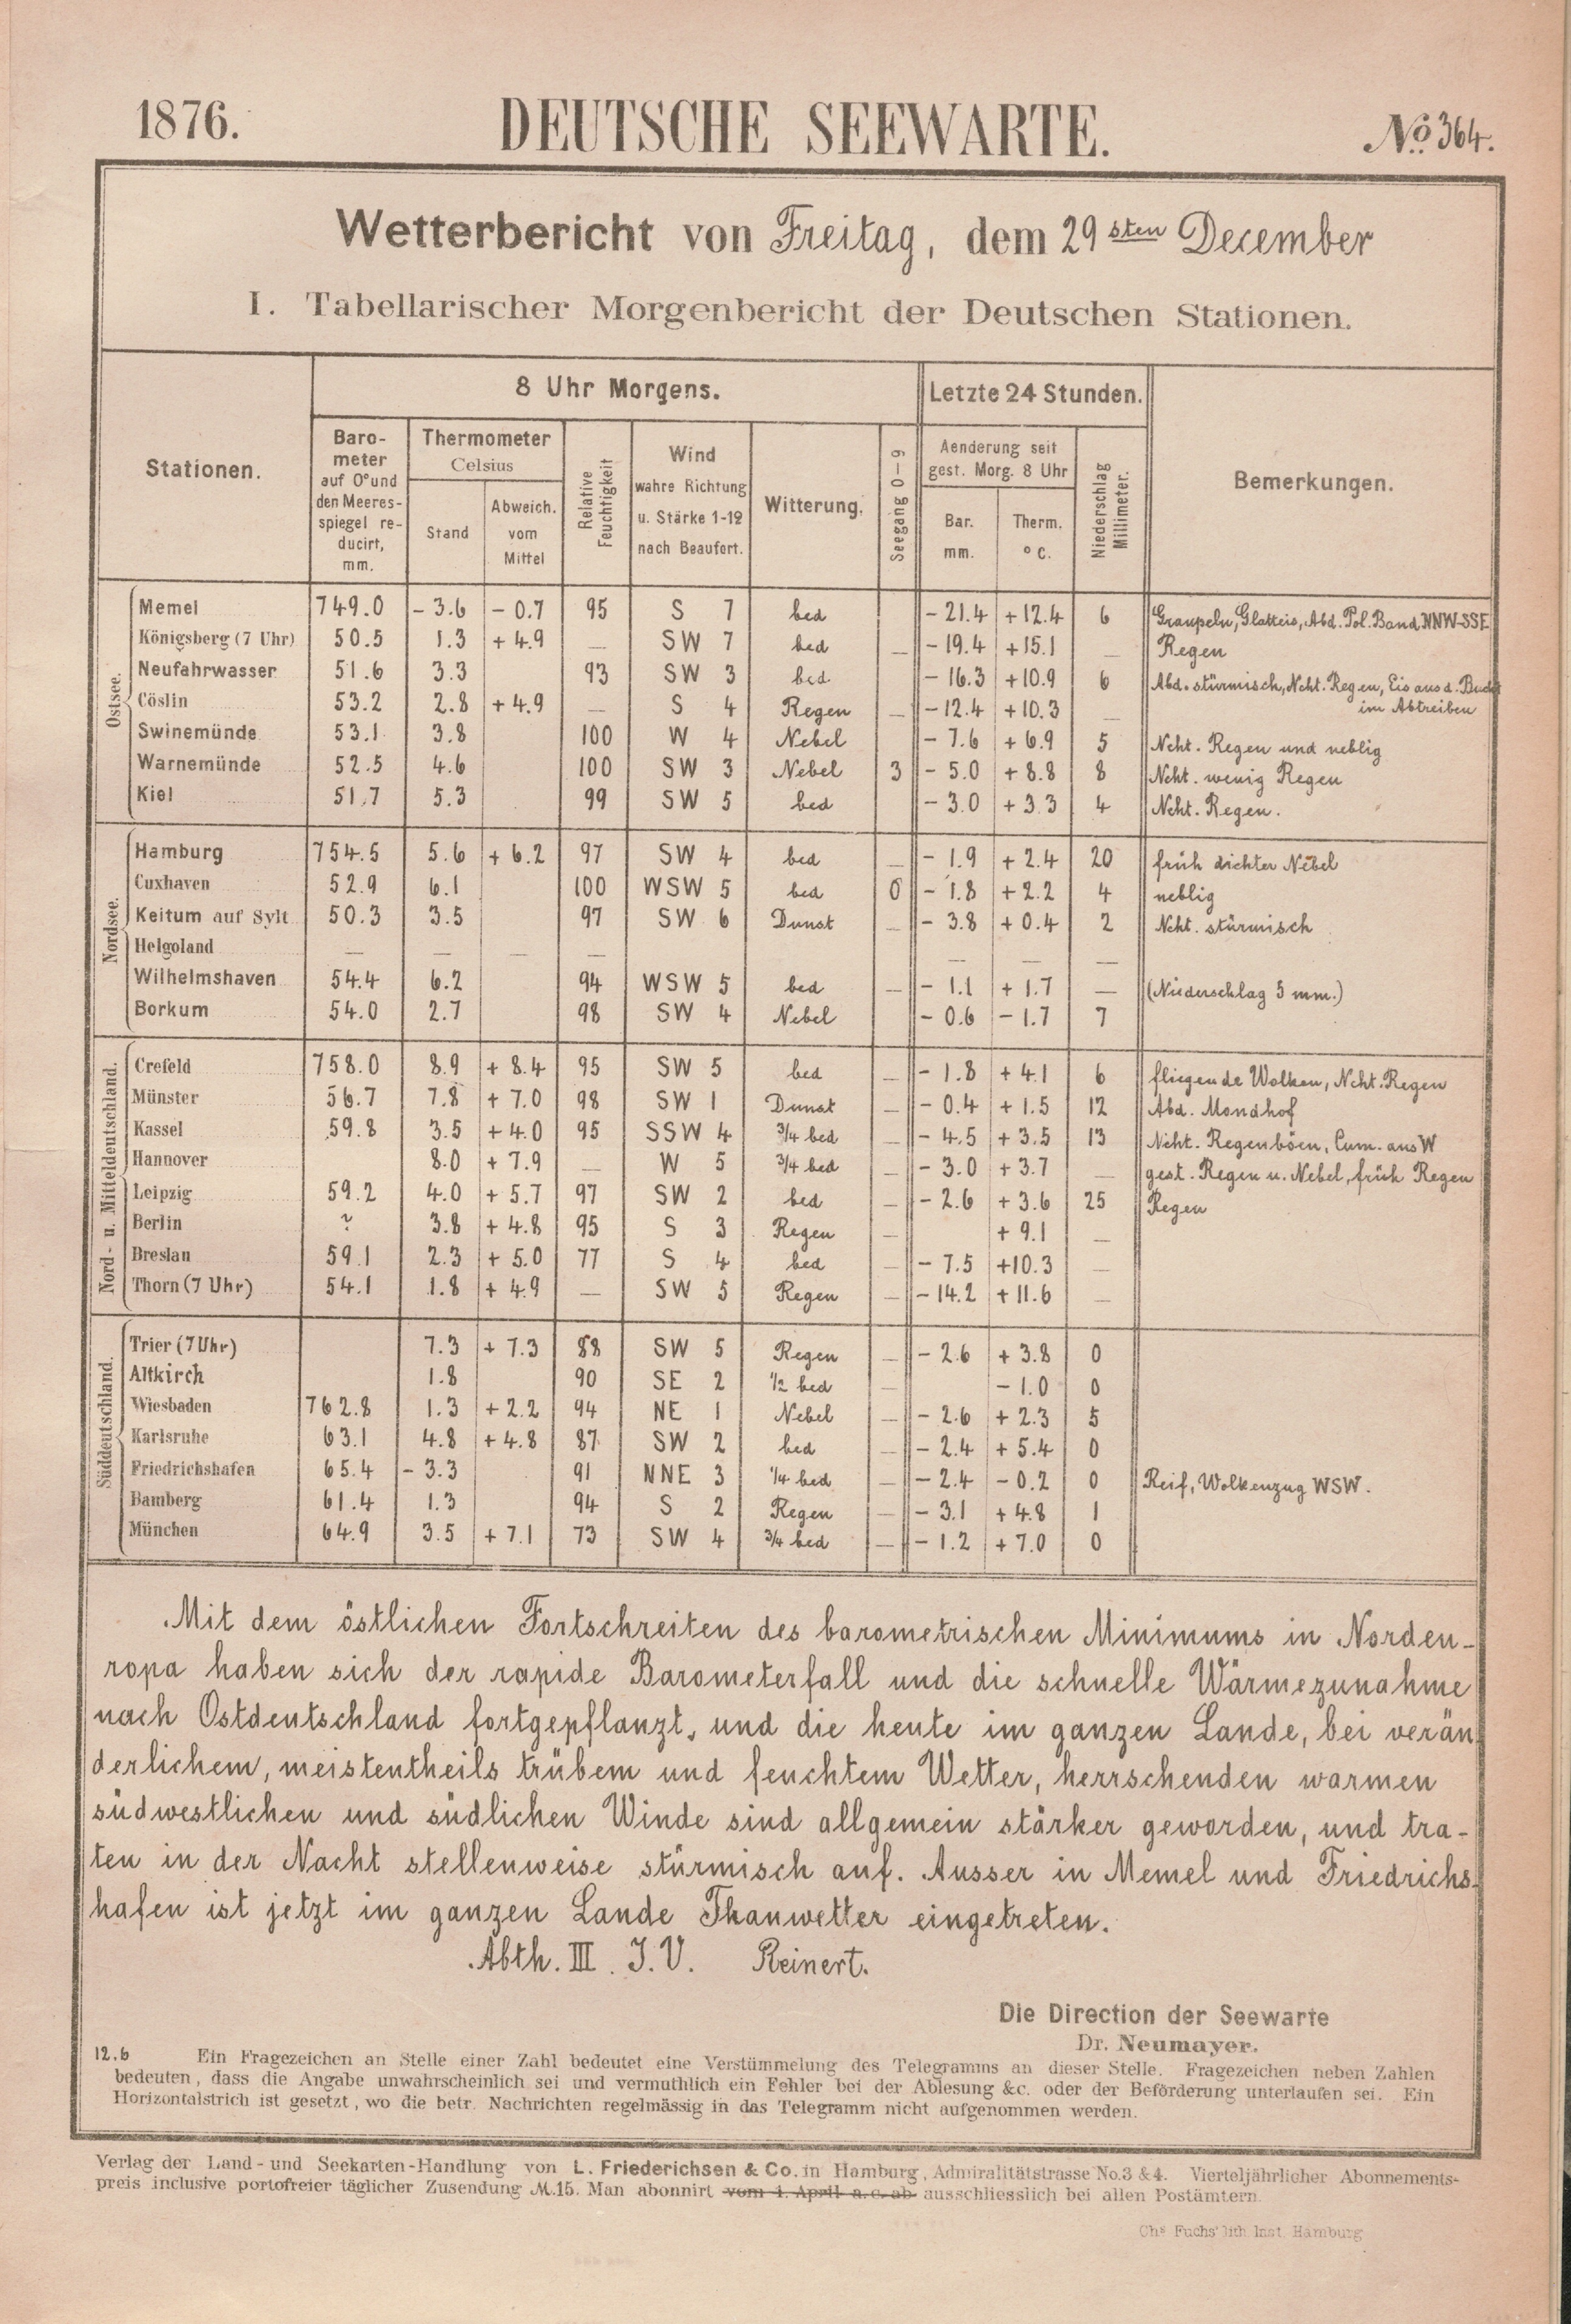 1876. DEUTSCHE SEEWARTE. No. 364.
Wetterbericht von Freitag, dem 29sten December
I. Tabellarischer Morgenbericht der Deutschen Stationen.
Stationen. 8 Uhr Morgens. Letzte 24 Stunden. Bemerkungen.
Barometer auf 0° und den Meeresspiegel reducirt, mm. Thermometer Celsius Stand Abweich. vom Mittel Relative Feuchtigkeit Wind wahre Richtung u. Stärke 1-12 nach Beaufort. Witterung. Seegang 0-9 Aenderung seit gest. Morg. 8 Uhr Bar. mm. Therm. °C. Niederschlag Millimeter.
Ostsee.
Memel 749.0 -3.6 -0.7 95 S 7 bed -21.4 +12.4 6 Graupeln, Glatteis, Abd. Pol. Band NNW-SSE
Königsberg (7 Uhr) 50.5 1.3 +4.9 — SW 7 bed — -19.4 +15.1 — Regen
Neufahrwasser 51.6 3.3 93 SW 3 bed. -16.3 +10.9 6 Abd. stürmisch, Ncht. Regen, Eis aus d. Bucht
Cöslin 53.2 2.8 +4.9 — S 4 Regen — -12.4 +10.3 — im Abtreiben
Swinemünde 53.1 3.8 100 W 4 Nebel -7.6 +6.9 5 Ncht. Regen und neblig
Warnemünde 52.5 4.6 100 SW 3 Nebel 3 -5.0 +8.8 8 Ncht. wenig Regen
Kiel 51.7 5.3 99 SW 5 bed -3.0 +3.3 4 Ncht. Regen.
Nordsee.
Hamburg 754.5 5.6 +6.2 97 SW 4 bed — -1.9 +2.4 20 früh dichter Nebel
Cuxhaven 52.9 6.1 100 WSW 5 bed 0 -1.8 +2.2 4 neblig
Keitum auf Sylt 50.3 3.5 97 SW 6 Dunst — -3.8 +0.4 2 Ncht. stürmisch
Helgoland — — — — — — —
Wilhelmshaven 54.4 6.2 94 WSW 5 bed — -1.1 +1.7 — (Niederschlag 5 mm.)
Borkum 54.0 2.7 98 SW 4 Nebel -0.6 -1.7 7
Nord- u. Mitteldeutschland.
Crefeld 758.0 8.9 +8.4 95 SW 5 bed — -1.8 +4.1 6 fliegende Wolken, Ncht. Regen
Münster 56.7 7.8 +7.0 98 SW 1 Dunst — -0.4 +1.5 12 Abd. Mondhof
Kassel 59.8 3.5 +4.0 95 SSW 4 3/4 bed — -4.5 +3.5 13 Ncht. Regenböen, Cum. aus W
Hannover 8.0 +7.9 — W 5 3/4 bed — -3.0 +3.7 — gest. Regen u. Nebel, früh Regen
Leipzig 59.2 4.0 +5.7 97 SW 2 bed — -2.6 +3.6 25 Regen
Berlin ? 3.8 +4.8 95 S 3 Regen — +9.1 —
Breslau 59.1 2.3 +5.0 77 S 4 bed — -7.5 +10.3 —
Thorn (7 Uhr) 54.1 1.8 +4.9 — SW 5 Regen — -14.2 +11.6 —
Süddeutschland.
Trier (7 Uhr) 7.3 +7.3 88 SW 5 Regen — -2.6 +3.8 0
Altkirch 1.8 90 SE 2 1/2 bed — -1.0 0
Wiesbaden 762.8 1.3 +2.2 94 NE 1 Nebel — -2.6 +2.3 5
Karlsruhe 63.1 4.8 +4.8 87 SW 2 bed — -2.4 +5.4 0
Friedrichshafen 65.4 -3.3 91 NNE 3 1/4 bed — -2.4 -0.2 0 Reif, Wolkenzug WSW.
Bamberg 61.4 1.3 94 S 2 Regen — -3.1 +4.8 1
München 64.9 3.5 +7.1 73 SW 4 3/4 bed — -1.2 +7.0 0
Mit dem östlichen Fortschreiten des barometrischen Minimums in Norden-
ropa haben sich der rapide Barometerfall und die schnelle Wärmezunahme
nach Ostdeutschland fortgepflanzt, und die heute im ganzen Lande, bei verän
derlichem, meistentheils trübem und feuchtem Wetter, herrschenden warmen
südwestlichen und südlichen Winde sind allgemein stärker geworden, und tra-
ten in der Nacht stellenweise stürmisch auf. Ausser in Memel und Friedrichs-
hafen ist jetzt im ganzen Lande Thauwetter eingetreten.
Abth. III. J.V. Reinert.
Die Direction der Seewarte
Dr. Neumayer.
12.6 Ein Fragezeichen an Stelle einer Zahl bedeutet eine Verstümmelung des Telegramms an dieser Stelle. Fragezeichen neben Zahlen
bedeuten, dass die Angabe unwahrscheinlich sei und vermuthlich ein Fehler bei der Ablesung &c. oder der Beförderung unterlaufen sei. Ein
Horizontalstrich ist gesetzt, wo die betr. Nachrichten regelmässig in das Telegramm nicht aufgenommen werden.
Verlag der Land- und Seekarten-Handlung von L. Friederichsen & Co. in Hamburg, Admiralitätstrasse No. 3 & 4. Vierteljährlicher Abonnements-
preis inclusive portofreier täglicher Zusendung M. 15. Man abonnirt vom 1. April a. c. ab ausschliesslich bei allen Postämtern.
Chs Fuchs' lith. Inst. Hamburg